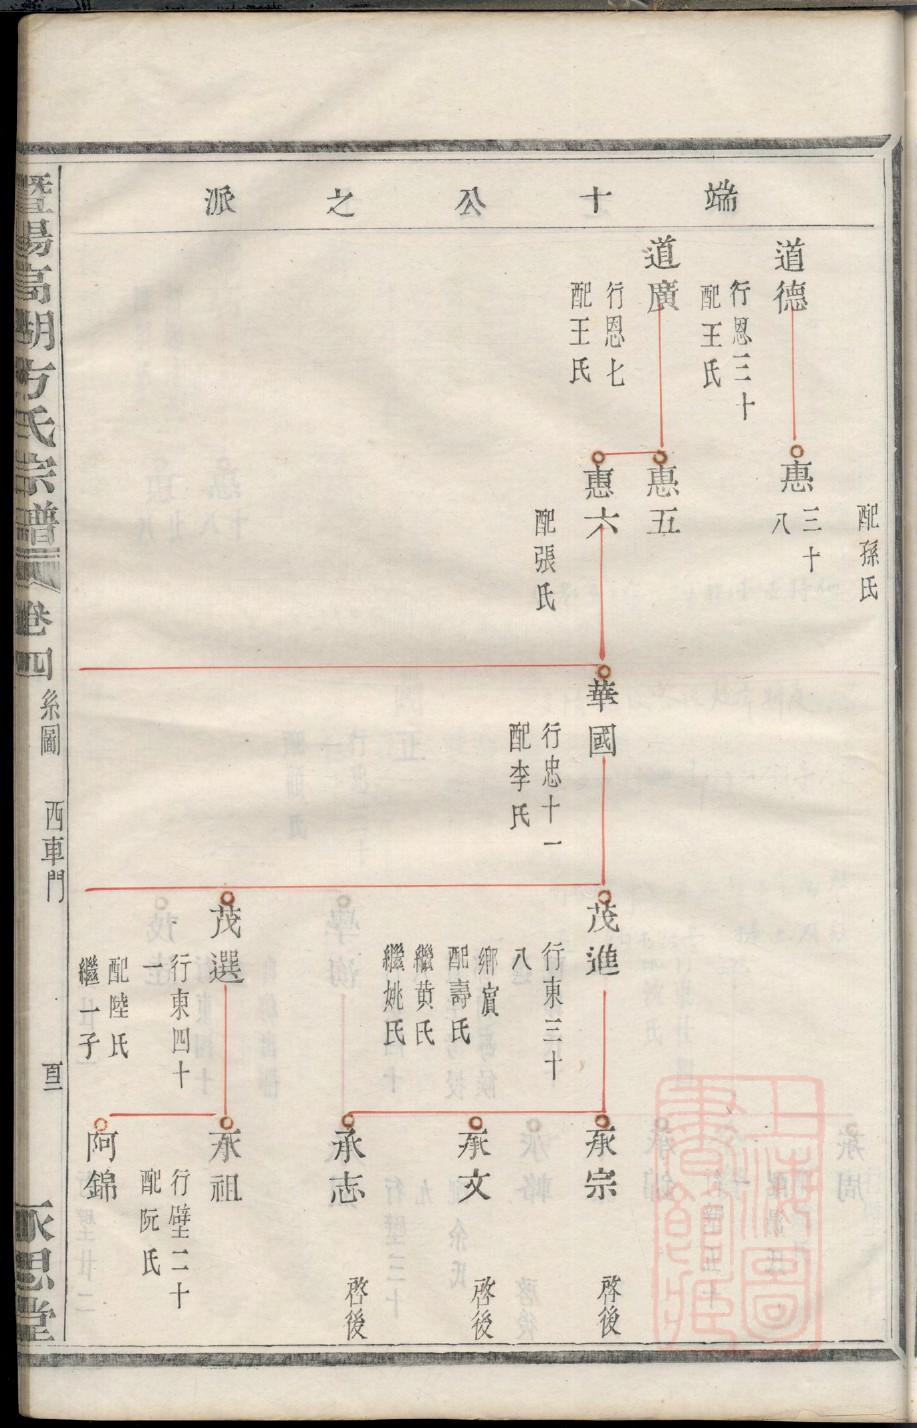 端十公之派
配孫氏
道德
行恩三十
配王氏
惪
三十
八
道廣
行恩七
配王氏
惪五
惪六
配張氏
華國
行忠十一
配李氏
茂進
行東三十
八
鄉賓
配壽氏
繼黄氏
繼姚氏
茂選
行東四十
一
配陸氏
繼一子
承宗
啓後
承文
啓後
承志
啓後
承祖
行壁二十
配阮氏
阿錦
暨陽高湖方氏宗譜
卷四
系圖
西車門
永思堂